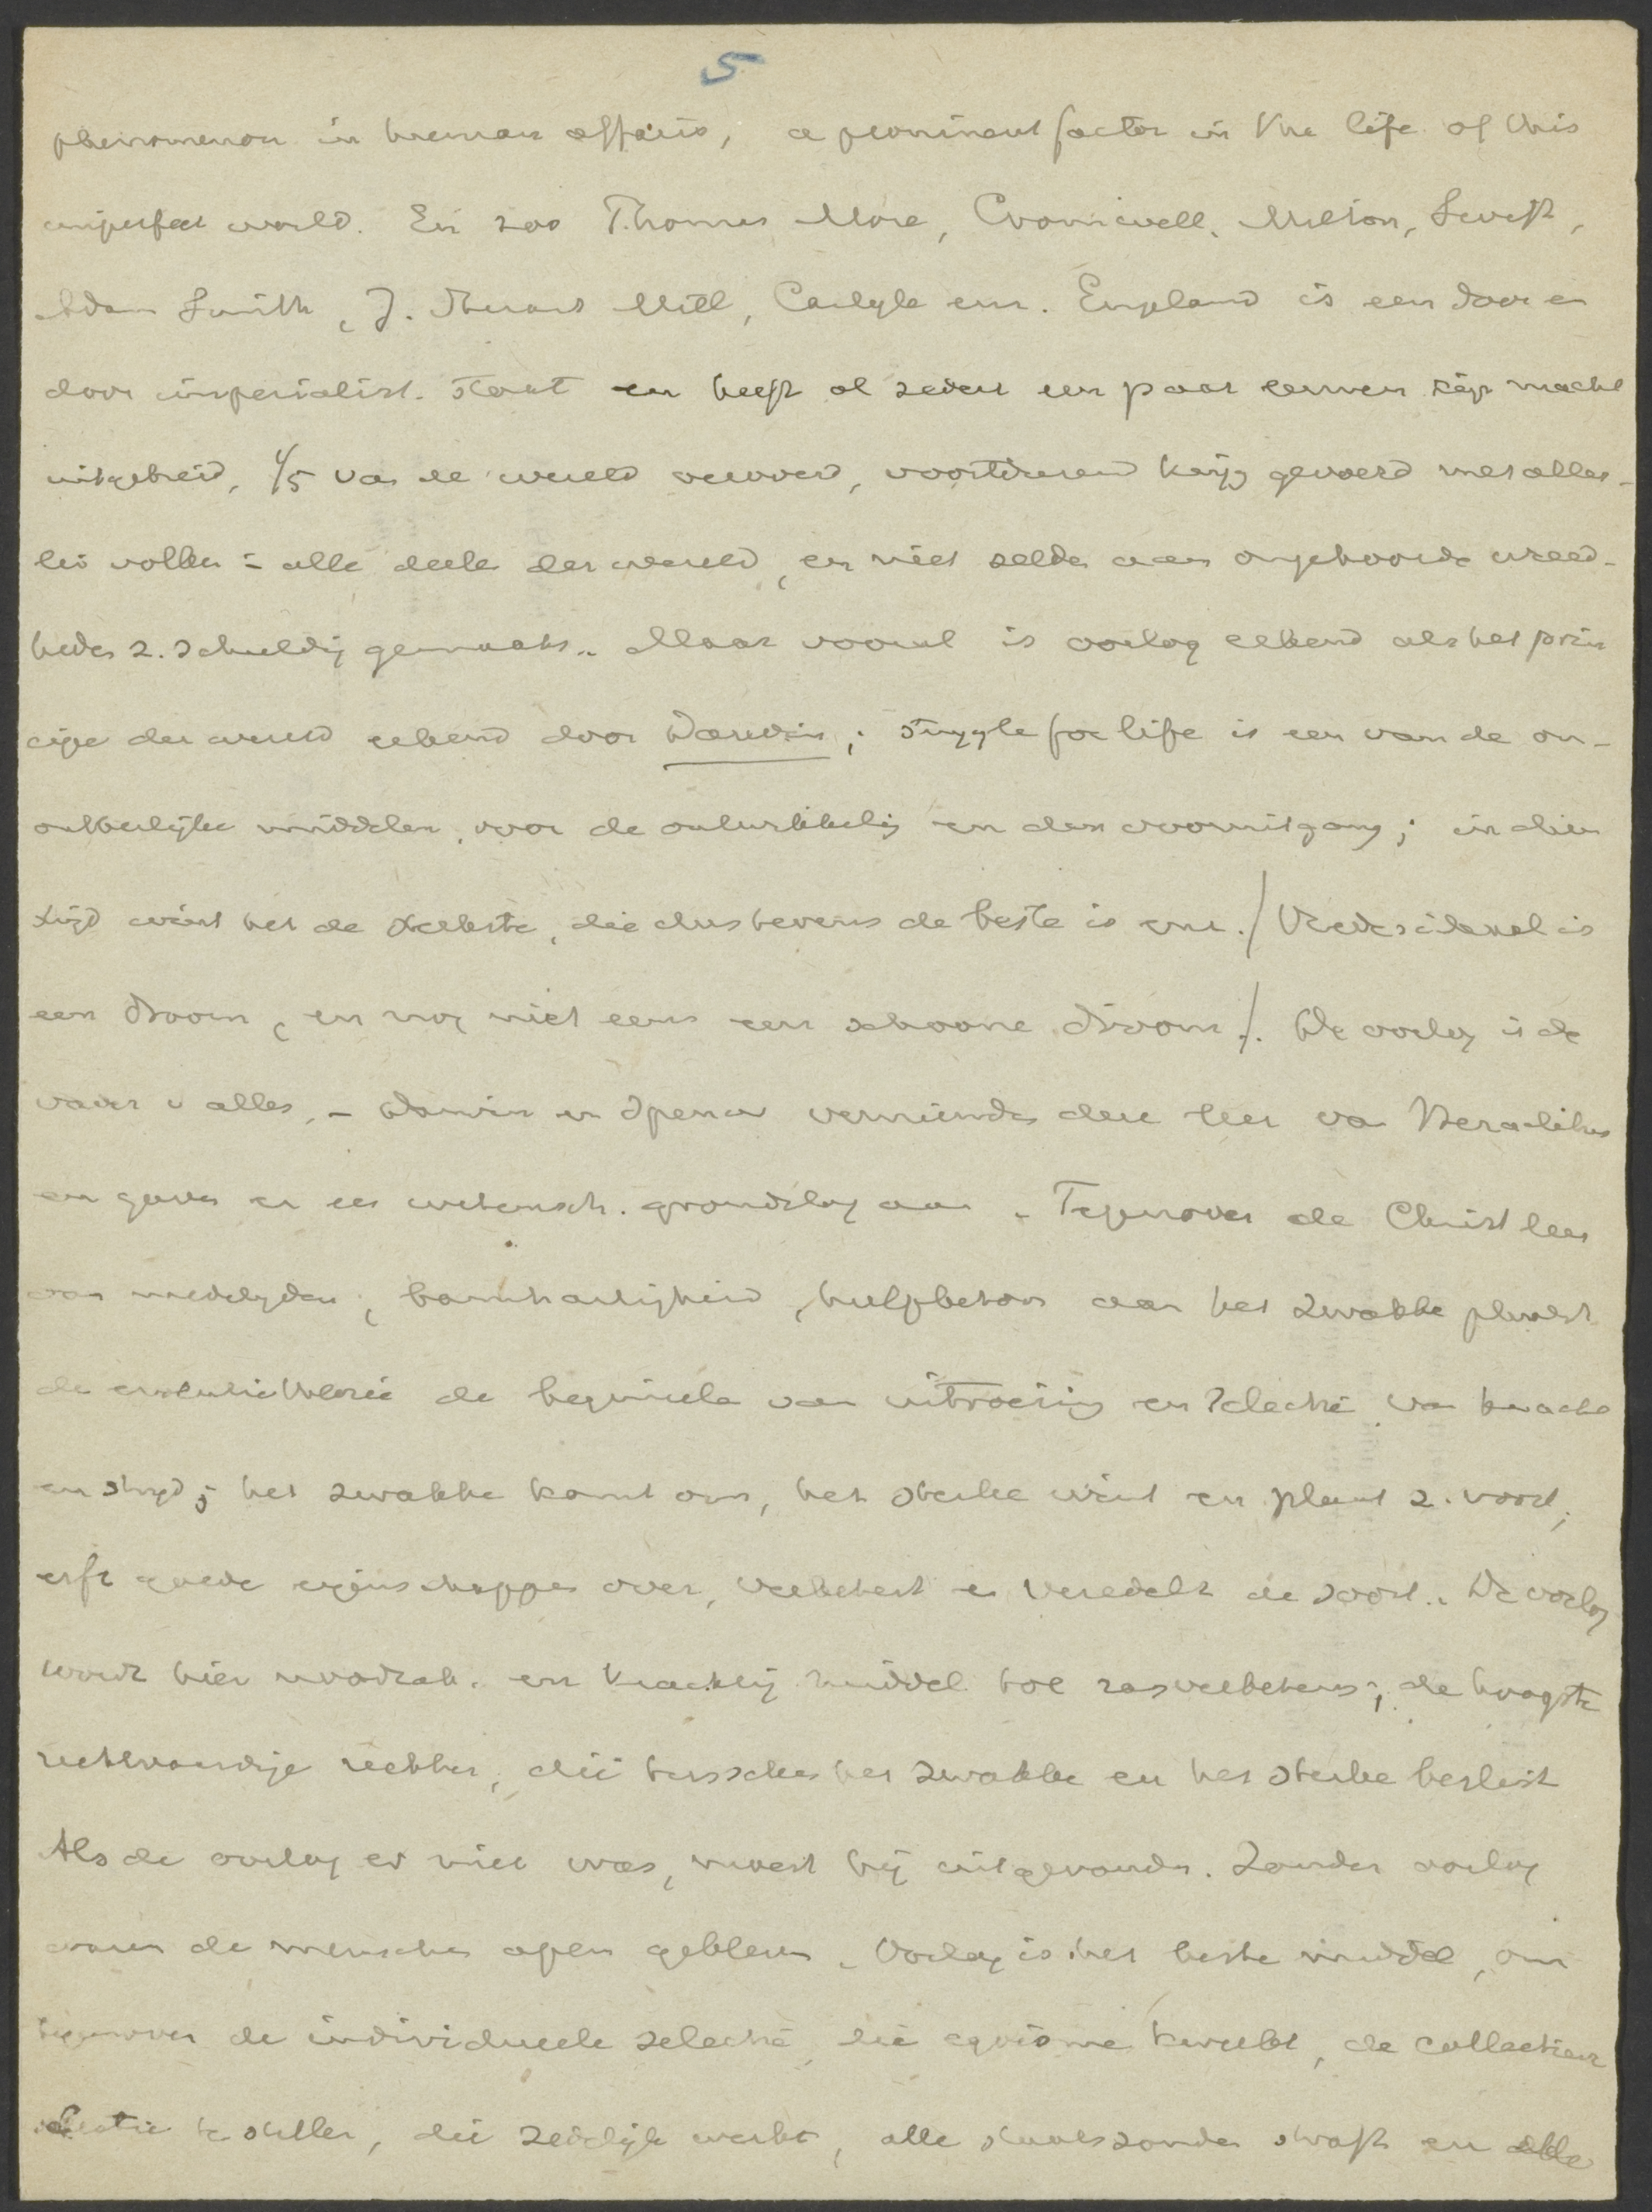 5
phenomenon in human affairs, a prominent factor in the life of this
imperfect world. En zoo Thomas More, Cromwell, Milton, Swift,
Adam Smith, J. Stuart Mill, Carlyle enz. Engeland is een door en
door imperialist. staat en heeft al sedert een paar eeuwen zijn macht
uitgebreid, 1/5 van de wereld veroverd, voortdurend krijg gevoerd met aller-
lei volken in alle deelen der wereld, en niet zelden aan ongehoorde wreed-
heden z. schuldig gemaakt. Maar vooral is oorlog erkend als het prin
cipe der wereld erkend door Darwin; struggle for life is een van de on-
ontbeerlijke middelen voor de ontwikkeling en den vooruitgang; in dien
strijd wint het de sterkste, die dus tevens de beste is enz. / Vredesideaal is
een droom, en nog niet eens een schoone droom /. De oorlog is de
vader v alles. - Darwin en Spencer vernieuwden deze leer van Heraclitus
en gaven er een wetensch. grondslag aan. Tegenover de Christ leer
van medelijden, barmhartigheid, hulpbetoon aan het zwakke plaatst
de evolutietheorie de beginselen van uitroeiing en selectie van kracht
en strijd; het zwakke komt om, het sterke wint en plant z. voort,
erft goede eigenschappen over, verbetert en veredelt de soort. De oorlog
wordt hier noodzak. en krachtig middel tot rasverbetering; de hoogste
rechtvaardige rechter, die tusschen het zwakke en het sterke beslist
Als de oorlog er niet was, moest hij uitgevonden. Zonder oorlog
waren de menschen apen gebleven. Oorlog is het beste middel, om
tegenover de individueele selectie, die egoisme kweekt, de collectieve
selectie te stellen, die zedelijk werkt, alle staatszonden straft en alle